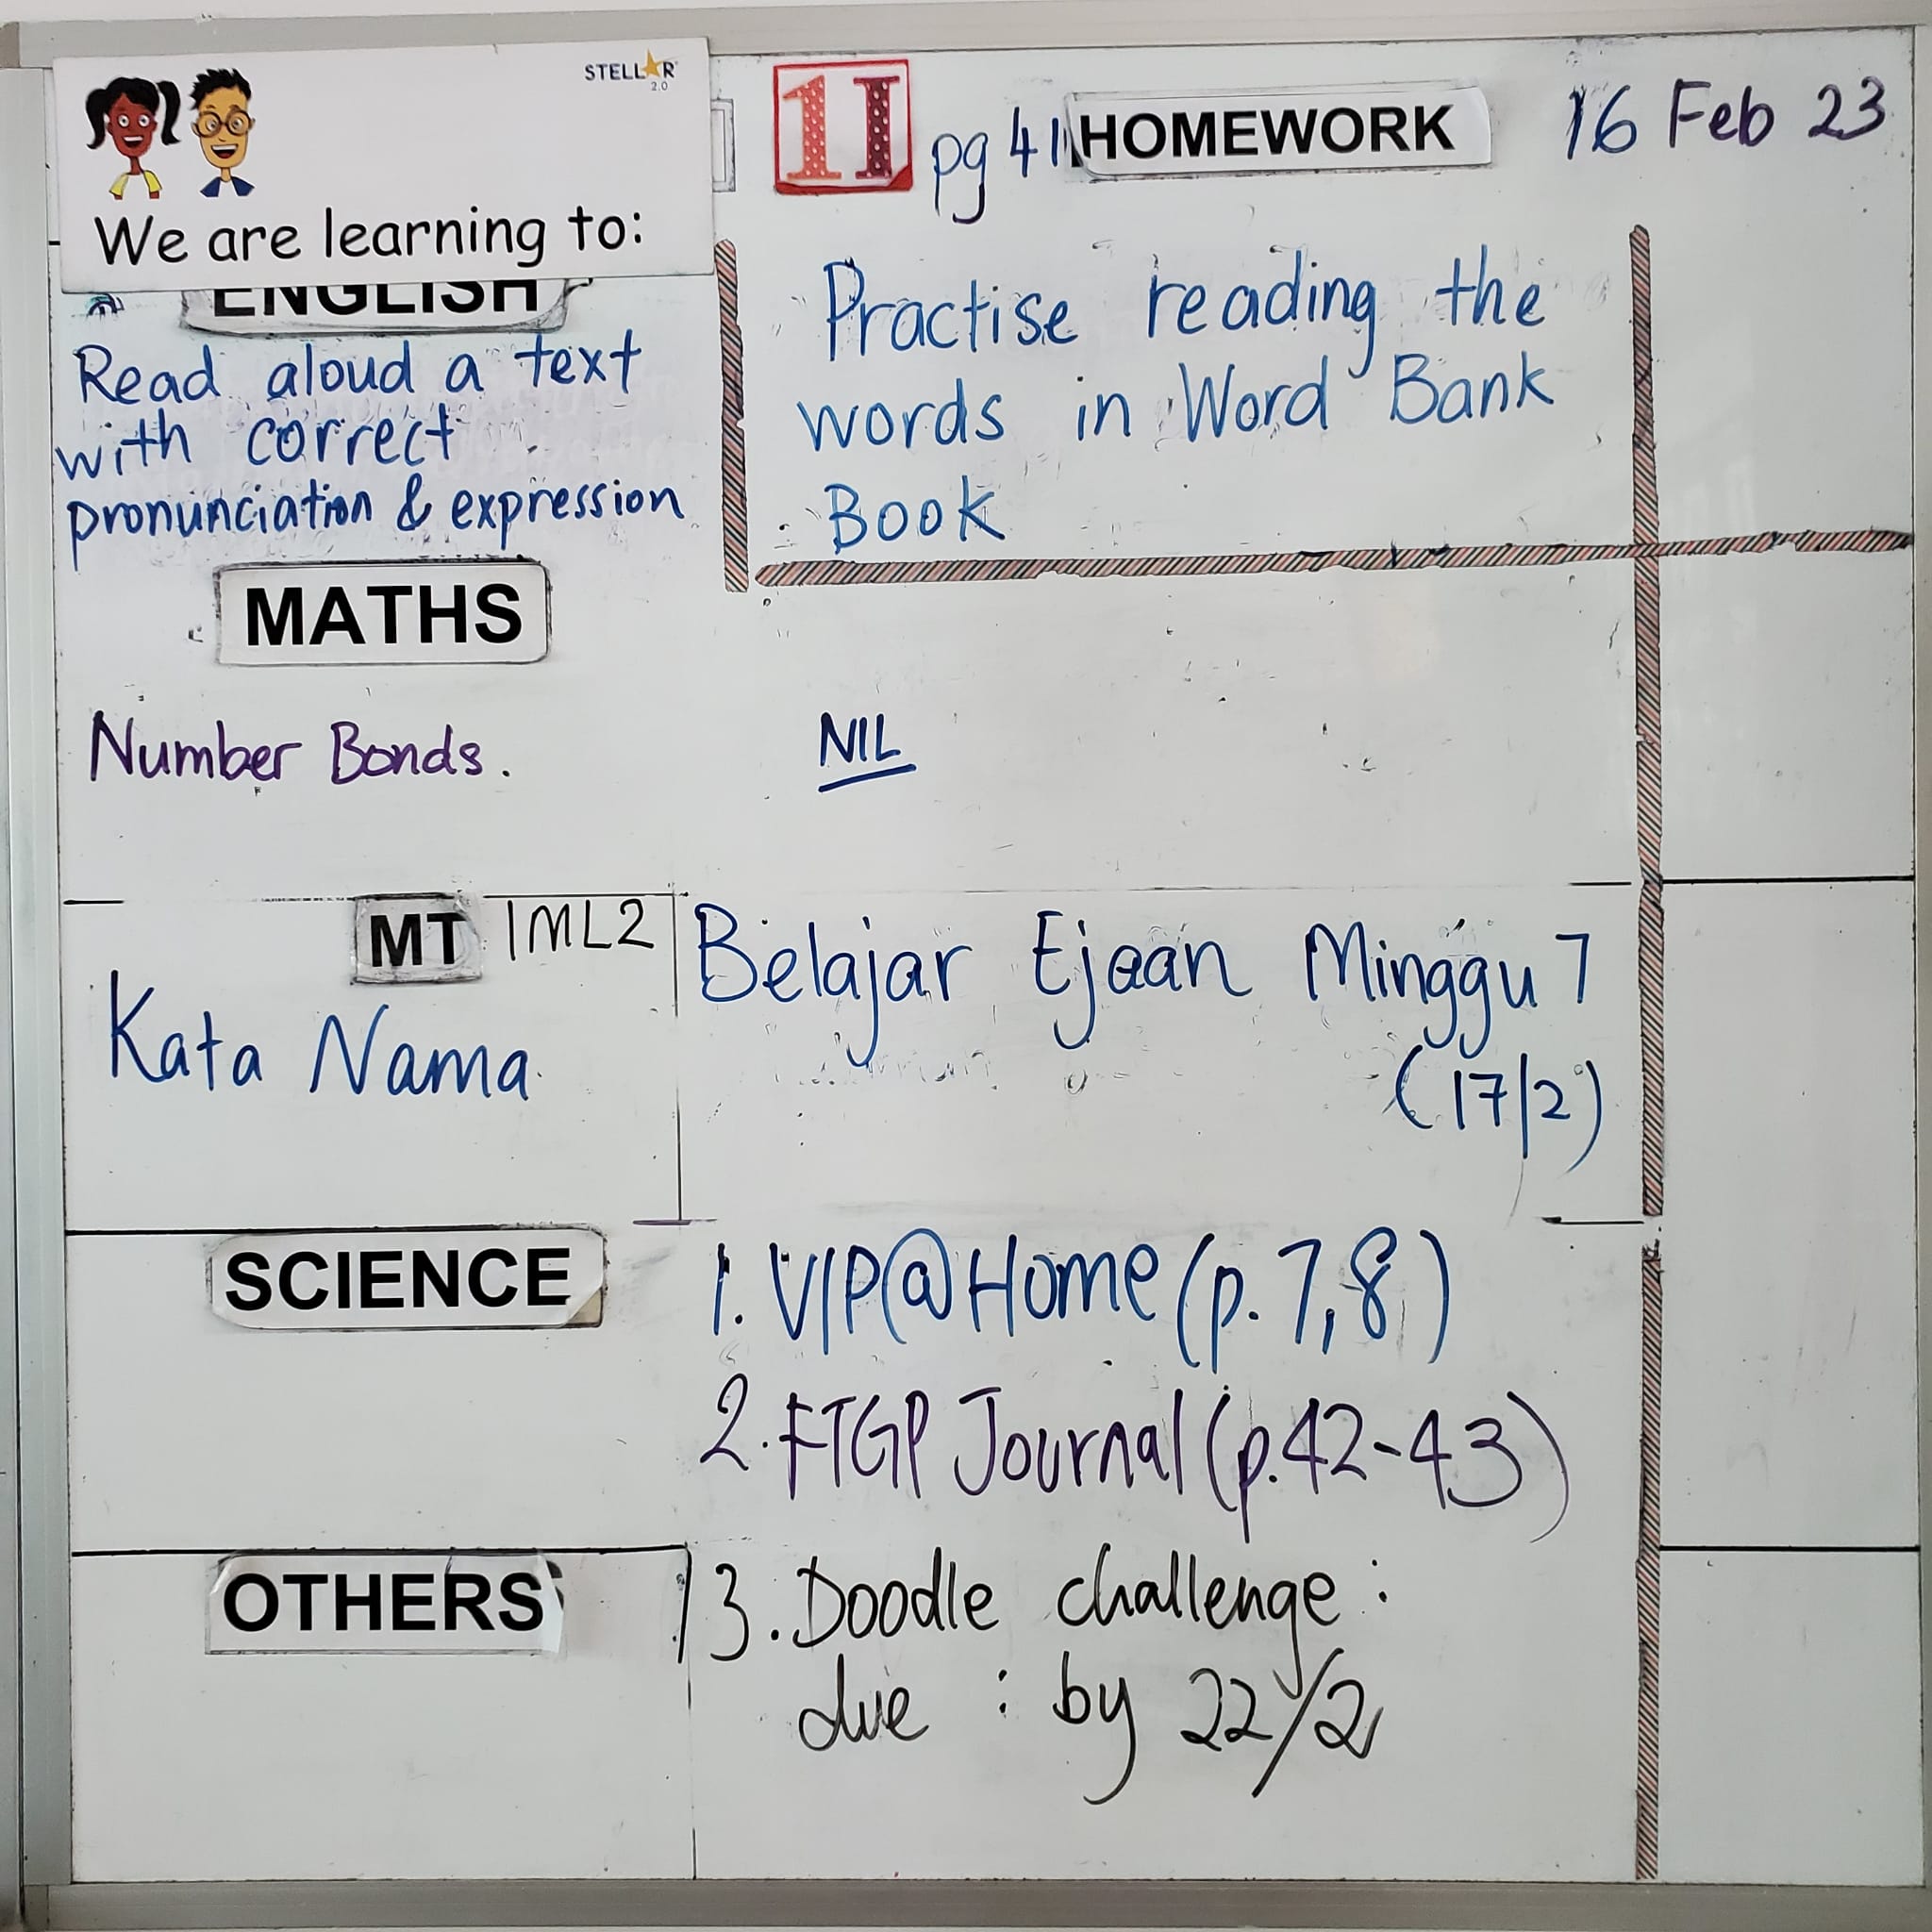 STELLAR
2.0
We are learning to:
1I pg 41 HOMEWORK 16 Feb 23
ENGLISH
Read aloud a text
with correct
pronunciation & expression
Practise reading the
words in Word Bank
Book
MATHS
Number Bonds.
NIL
MT 1ML2
Kata Nama
Belajar Ejaan Minggu 7
(17/2)
SCIENCE
1. VIP@Home (p. 7,8)
2. FTGP Journal (p.42-43)
OTHERS
3. Doodle challenge :
due : by 22/2